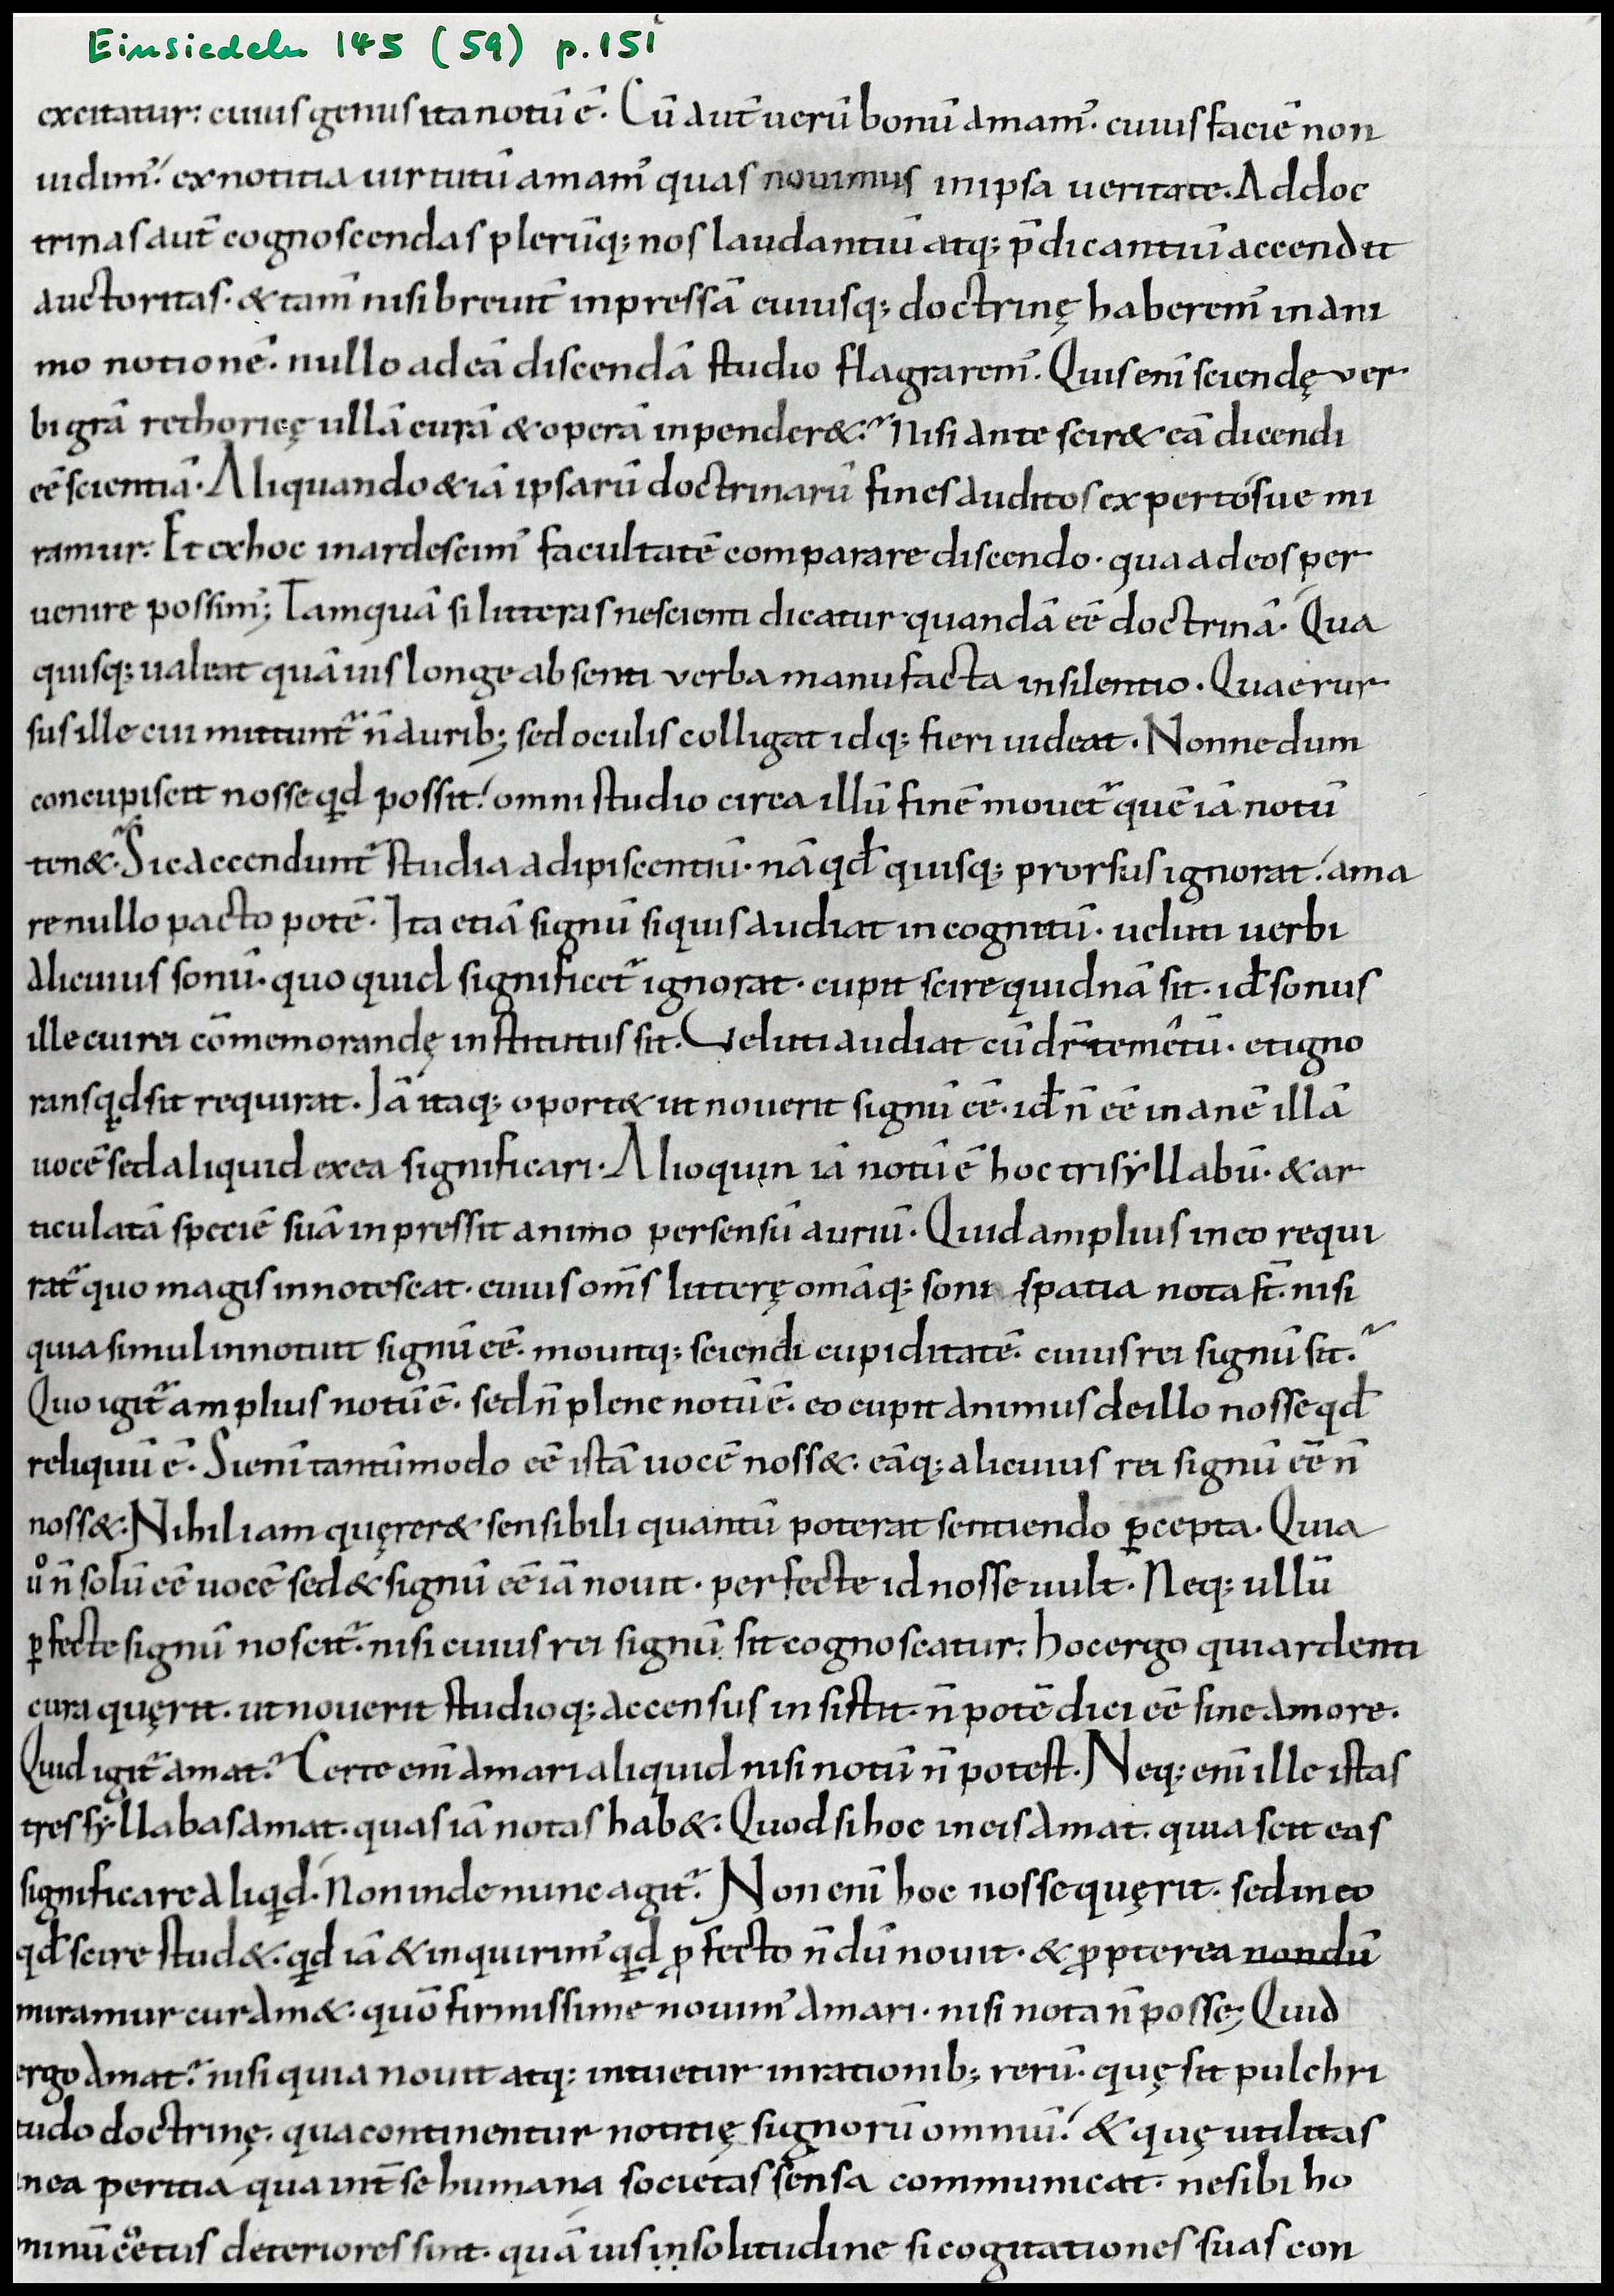 Einsiedeln 145 (59) p. 151
excitatur: cuius genus ita notū ē. Cū aut̄ uerū bonū amam᾽. cuius faciē non
uidim᾽. ex notitia uirtutū amam᾽ quas novimus in ipsa ueritate. Ad doc
trinas aut̄ cognoscendas plerūq; nos laudantiū atq; p̄dicantiū accendit
auctoritas. & tam̄ nisi breuit̄ inpressā cuiusq; doctrinę haberem᾽ in ani
mo notionē. nullo ad eā discendā studio flagrarem᾽. Quis eni᾽ sciendę ver
bi grā rethoricę ullā curā & operā inpender&. Nisi ante scir& eā dicendi
eē scientiā. Aliquando & iā ipsarū doctrinarū fines auditos expertósue mi
ramur. Et ex hoc inardescim᾽ facultatē comparare discendo. qua ad eos per
uenire possim᾽; Tamquā si litteras nescienti dicatur quandā eē doctrinā. Qua
quisq; ualeat quāuis longe absenti verba manu facta in silentio. Quae rur
sus ille cui mittunt᾽ n̄ aurib; sed oculis colligat idq; fieri uideat. Nonne dum
concupiscit nosse qd possit. omni studio circa illū finē mouet᾽ quē iā notū
ten&. Sic accendunt᾽ studia adipiscentiū. nā qd̄ quisq; prorsus ignorat. ama
re nullo pacto potē. Ita etiā signū si quis audiat incognitū. ueluti uerbi
alicuius sonū. quo quid significet᾽ ignorat. cupit scire quidnā sit. id̄ sonus
ille cui rei cōmemorandę institutus sit. Veluti audiat cū dr̄ temetū. et igno
rans qd sit requirat. Iā itaq; oport& ut nouerit signū eē. id̄ n̄ eē inanē illā
uocē sed aliquid ex ea significari. Alioquin iā notū ē hoc trisẏllabū. & ar
ticulatā speciē suā inpressit animo per sensū auriū. Quid amplius in eo requi
rat᾽ quo magis innotescat. cuius om̄s litterę omāq; soni spatia nota st̄. nisi
quia simul innotuit signū eē. mouitq; sciendi cupiditatē. cuius rei signū sit.
Quo igit᾽ amplius notū ē. sed n̄ plene notū ē. eo cupit animus de illo nosse qd̄
reliquū ē. Si eni᾽ tantūmodo eē istā uocē noss&. eāq; alicuius rei signū eē n̄
noss&. Nihil iam quęrer& sensibili quantū poterat sentiendo ꝑcepta. Quia
uͦ n̄ solū eē uocē sed & signū eē iā nouit. perfecte id nosse uult. Neq; ullū
ꝑfecte signū noscit᾽. nisi cuius rei signū sit cognoscatur. hoc ergo qui ardenti
cura quęrit. ut nouerit studioq; accensus insistit. n̄ potē dici eē sine amore.
Quid igit᾽ amat. Certe eni᾽ amari aliquid nisi notū n̄ potest. Neq; eni᾽ ille istas
tres sẏllabas amat. quas iā notas hab&. Quod si hoc in eis amat. quia scit eas
significare aliqd. Non inde nunc agit᾽. Non eni᾽ hoc nosse quęrit. sed in eo
qd̄ scire stud&. qd iā & inquirim᾽ qd ꝓfecto n̄dū nouit. & ꝓpterea nondū
miramur cur am&. quō firmissime nouim᾽ amari. nisi nota n̄ posse; Quid
ergo amat. nisi quia nouit atq; intuetur in rationib; rerū. quę sit pulchri
tudo doctrinę. qua continentur notitię signorū omniū. & quę utilitas
in ea peritia qua int̄ se humana societas sensa communicat. ne sibi ho
minū cętus deteriores sint. quāuis in solitudine si cogitationes suas con